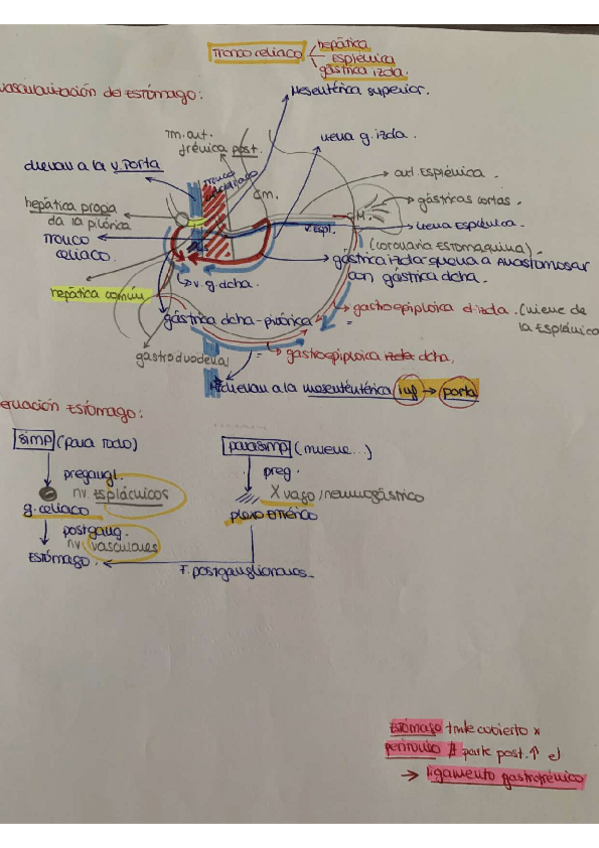 Tronco celiaco
hepática
esplénica
gástrica izda.
vascularización del Estómago:
Mesentérica superior.
rm. aut.
frénica post.
vena g. izda.
drenan a la v. Porta
Tronco
art. Esplénica.
gástricas cortas.
hepática propia
da la pilórica
vena Esplénica.
v. Espl.
(coronaria Estomaquina)
Tronco
celiaco.
gástrica izda que va a Anastomosar
con gástrica dcha.
hepática común
v. g. dcha.
gastroepiploica izda. (viene de
la Esplénica
gástrica dcha - pilórica
gastroduodenal
gastroepiploica dcha.
drenan a la mesentérica inf → porta
ervación Estómago:
simp (para todo)
parasimp (mueve...)
pregangl.
preg.
nv. Esplácnicos
X vago/neumogástrico
g. celíaco
plexo Entérico
postgang.
nv. vasculares
Estómago.
F. postganglionares
Estómago tmte cubierto x
peritoneo # parte post. ↑ el
→ ligamento gastrofrénico